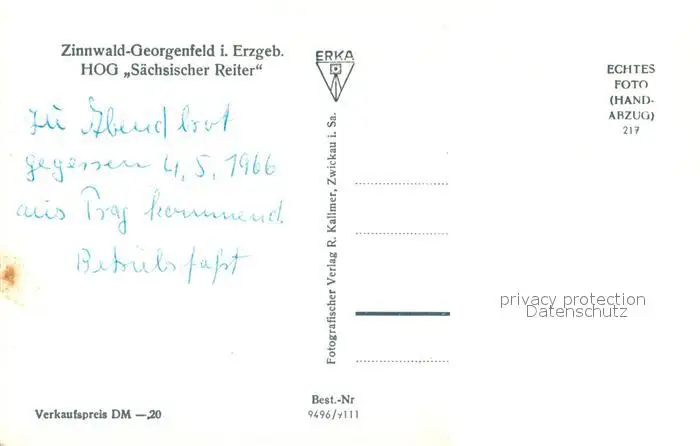 Zinnwald-Georgenfeld i. Erzgeb.
HOG „Sächsischer Reiter“
zu Abend brot
gegessen 4, 5, 1966
aus Prag kommend.
Betriebsfahrt
Verkaufspreis DM —,20
ERKA
Fotografischer Verlag R. Kallmer, Zwickau i. Sa.
Best.-Nr
9496/7111
ECHTES
FOTO
(HAND-
ABZUG)
217
privacy protection
Datenschutz